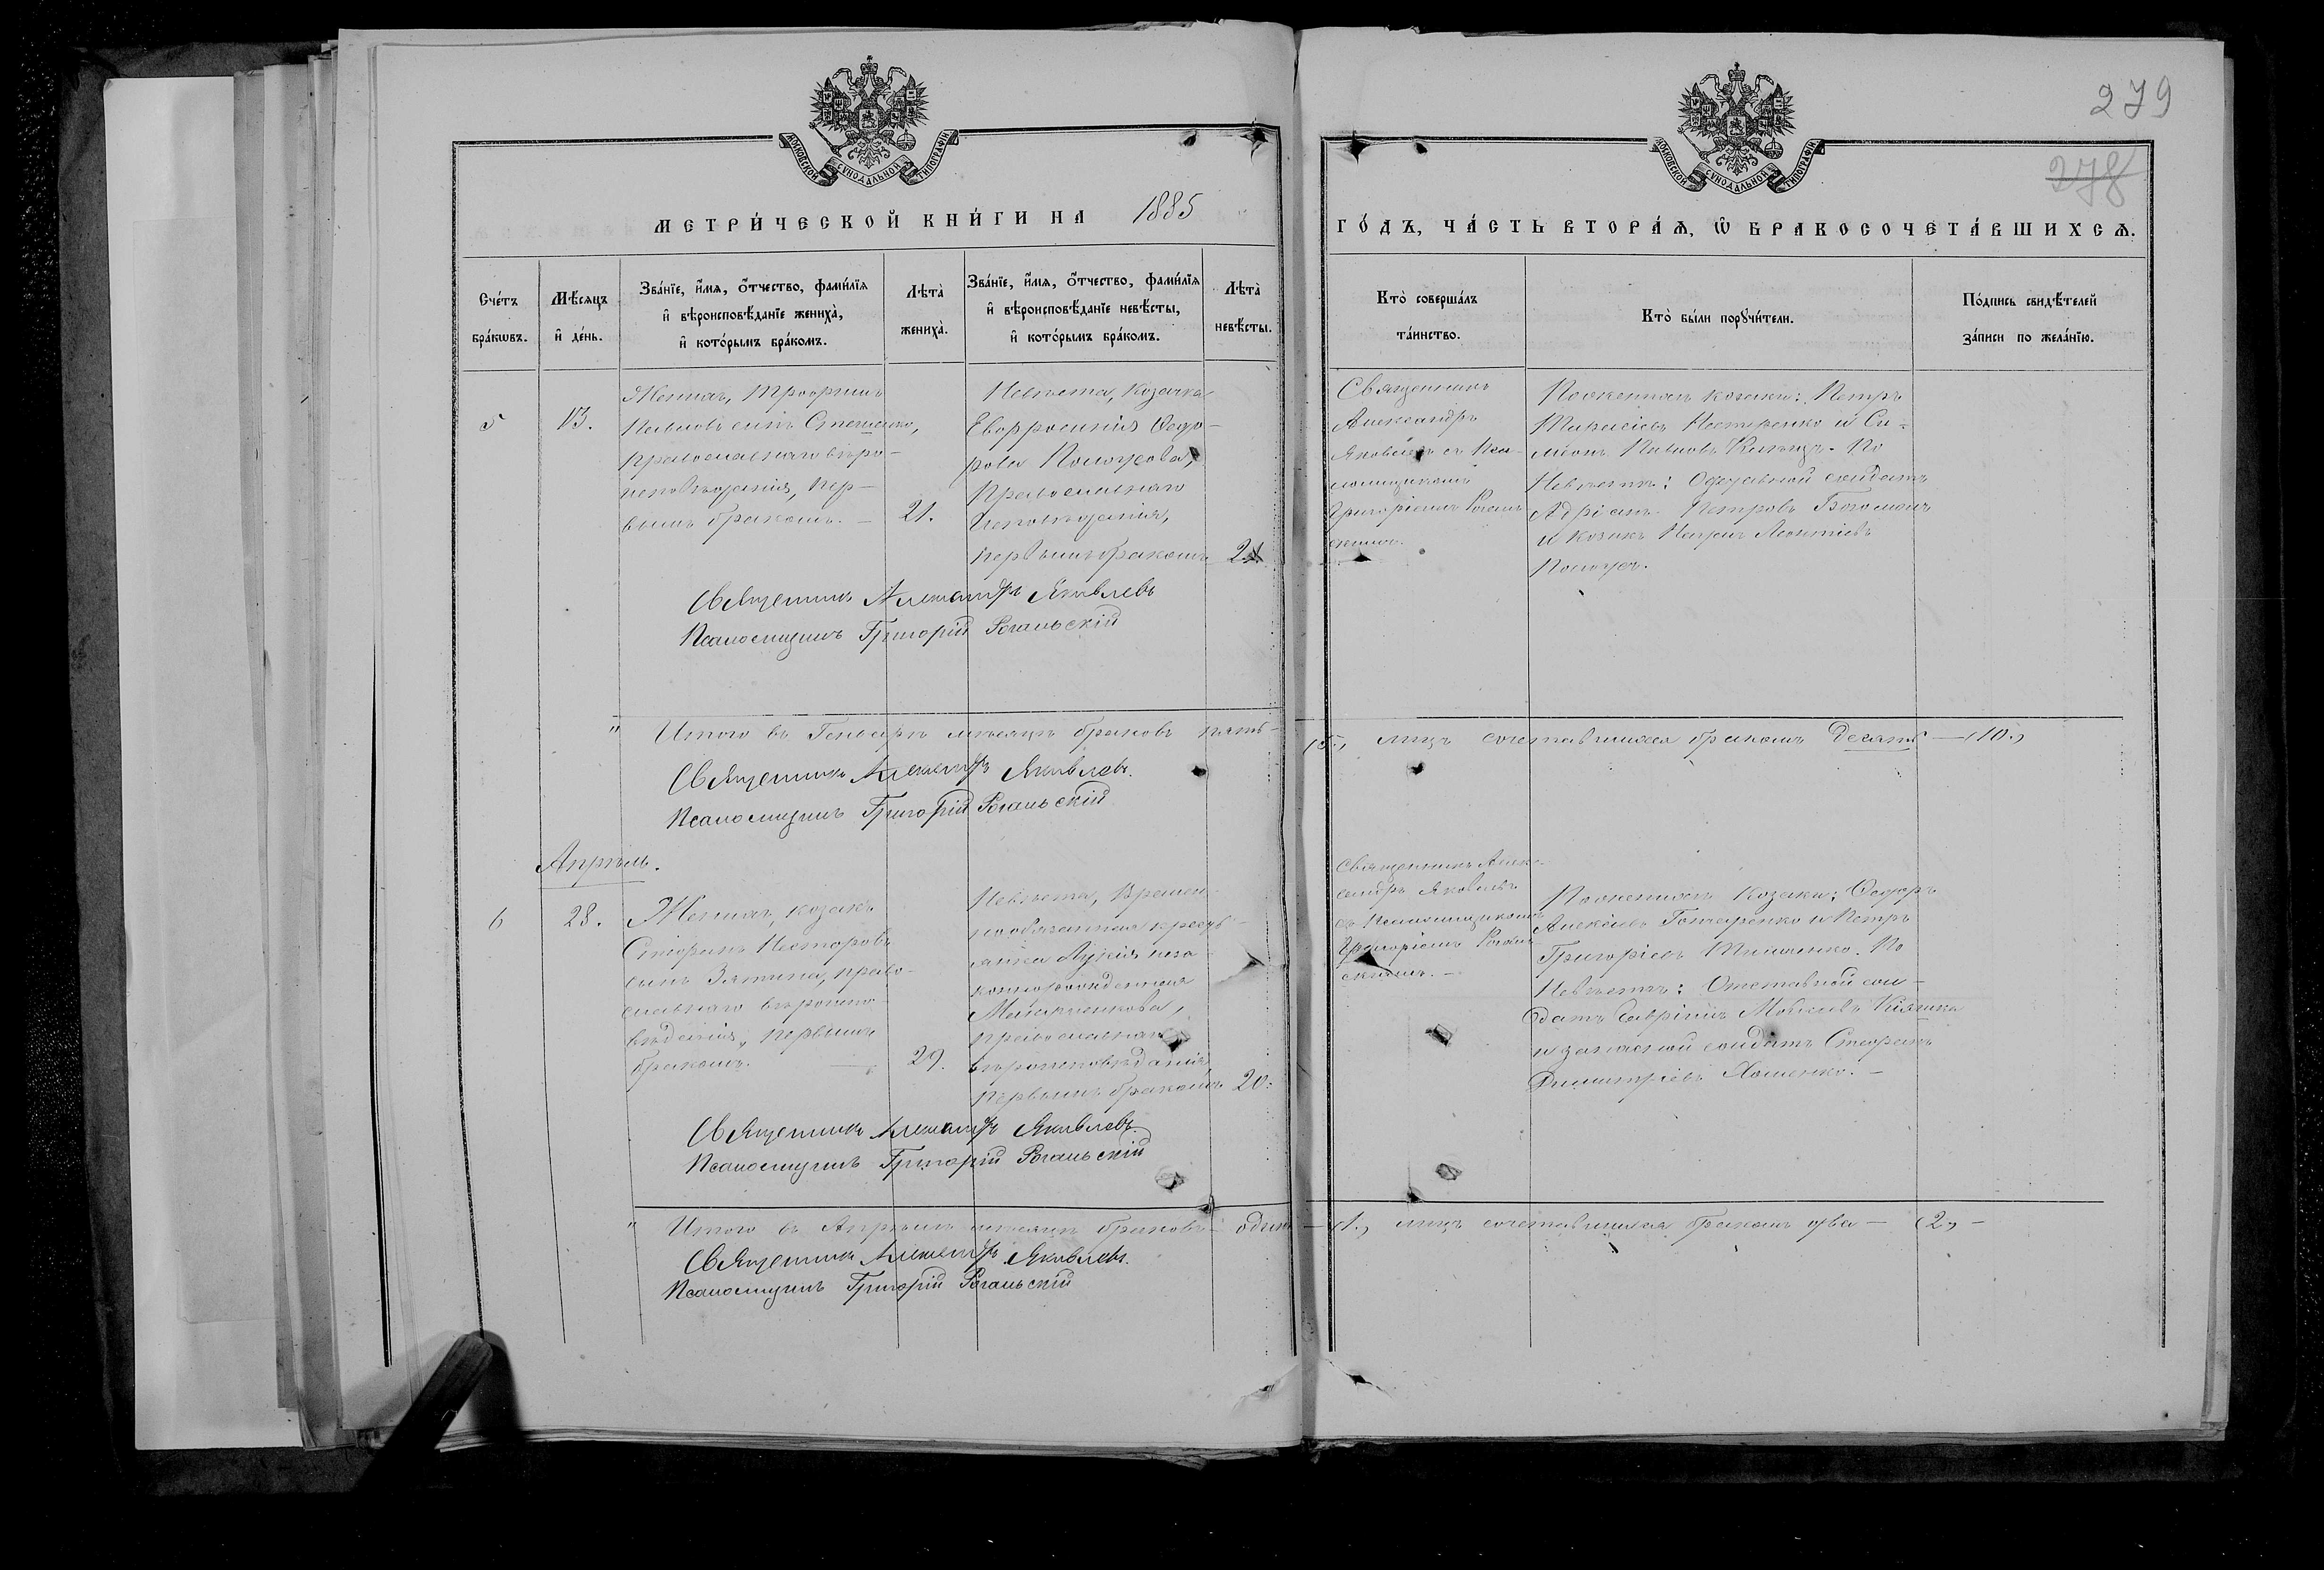 279
278
МОСКОВСКОЙ СѴНОДАЛЬНОЙ ТИПОГРАФІИ
МОСКОВСКОЙ СѴНОДАЛЬНОЙ ТИПОГРАФІИ
МЕТРИ́ЧЕСКОЙ КНИ́ГИ НА 1885
ГО́ДЪ, ЧА́СТЬ ВТОРА́Ѧ, Ѽ БРАКОСОЧЕТА́ВШИХСѦ.
Сче́тъ
бра́кѡвъ.
Мѣ́сяцъ
и҆ де́нь.
Зва́нїе, и҆́мѧ, ѻ҆́тчество, фами́лїѧ
и҆ вѣроисповѣ́данїе жениха̀,
и҆ кото́рымъ бра́комъ.
Лѣта̀
жениха̀.
Зва́нїе, и҆́мѧ, ѻ҆́тчество, фами́лїѧ
и҆ вѣроисповѣ́данїе невѣ́сты,
и҆ кото́рымъ бра́комъ.
Лѣта̀
невѣ́сты.
Кто̀ соверша́лъ
та́инство.
Кто̀ бы́ли порꙋчи́тели.
По́дпись свидѣ́телей
за́писи по жела́нїю.
5
13.
Женихъ, Трофимъ
Павловъ сынъ
православнаго вѣро-
исповѣданія, пер-
вымъ бракомъ. —
21.
Невѣста, козачка
Евфросинія Ѳедо-
рова
православнаго
исповѣданія,
первымъ бракомъ
Священникъ
Александръ
Яковлевъ съ Пса-
ломщикомъ
Григоріемъ Рогаль
скимъ.
По женихѣ козаки: Петръ
Нестеренко и Си-
Павловъ По
Невѣстѣ: солдатъ
Адріанъ Петровъ
и козакъ Леонтіевъ
Священникъ Александръ Яковлевъ
Псаломщикъ Григорій Рогальскій
" Итого въ Генварѣ мѣсяцѣ браковъ пять —
(5., лицъ сочетавшихся бракомъ Десять — (10.,
Священникъ Александръ Яковлевъ.
Псаломщикъ Григорій Рогальскій
Апрѣль.
6
28.
Женихъ, козакъ
Стефанъ Несторовъ
сынъ право-
славнаго вѣроиспо-
вѣданія, первымъ
бракомъ.
29.
Невѣста, Времен-
нообязанная кресть-
янка Лукія неза-
коннорожденная
православнаго
вѣроисповѣданія,
первымъ бракомъ
20.
Священникъ Алек-
сандръ Яковлевъ
съ Псаломщикомъ
Григоріемъ Рогаль-
скимъ. —
По женихѣ Козаки: Ѳедоръ
Алексѣевъ Гончаренко и Петръ
Григоріевъ По
Невѣстѣ: Отставной сол-
датъ
и запасной солдатъ Стефанъ
Димитріевъ
Священникъ Александръ Яковлевъ.
Псаломщикъ Григорій Рогальскій
" Итого въ Апрѣлѣ мѣсяцѣ браковъ — одинъ —
(1., лицъ сочетавшихся бракомъ два — (2., —
Священникъ Александръ Яковлевъ.
Псаломщикъ Григорій Рогальскій